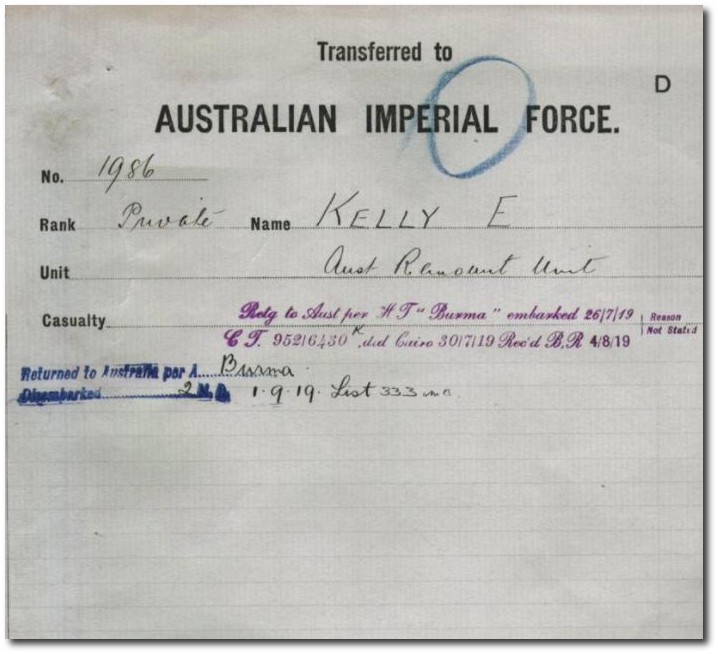 Transferred to
D
AUSTRALIAN IMPERIAL FORCE.
No. 1986
Rank Private Name KELLY E
Unit Aust Remount Unit
Casualty Retg to Aust per H T "Burma" embarked 26/7/19 Reason Not Stated
C T. 952/6430 K, dtd Cairo 30/7/19 Rec'd B.R 4/8/19
Returned to Australia per A. Burma.
Disembarked 2 M.D. 1.9.19. List 333